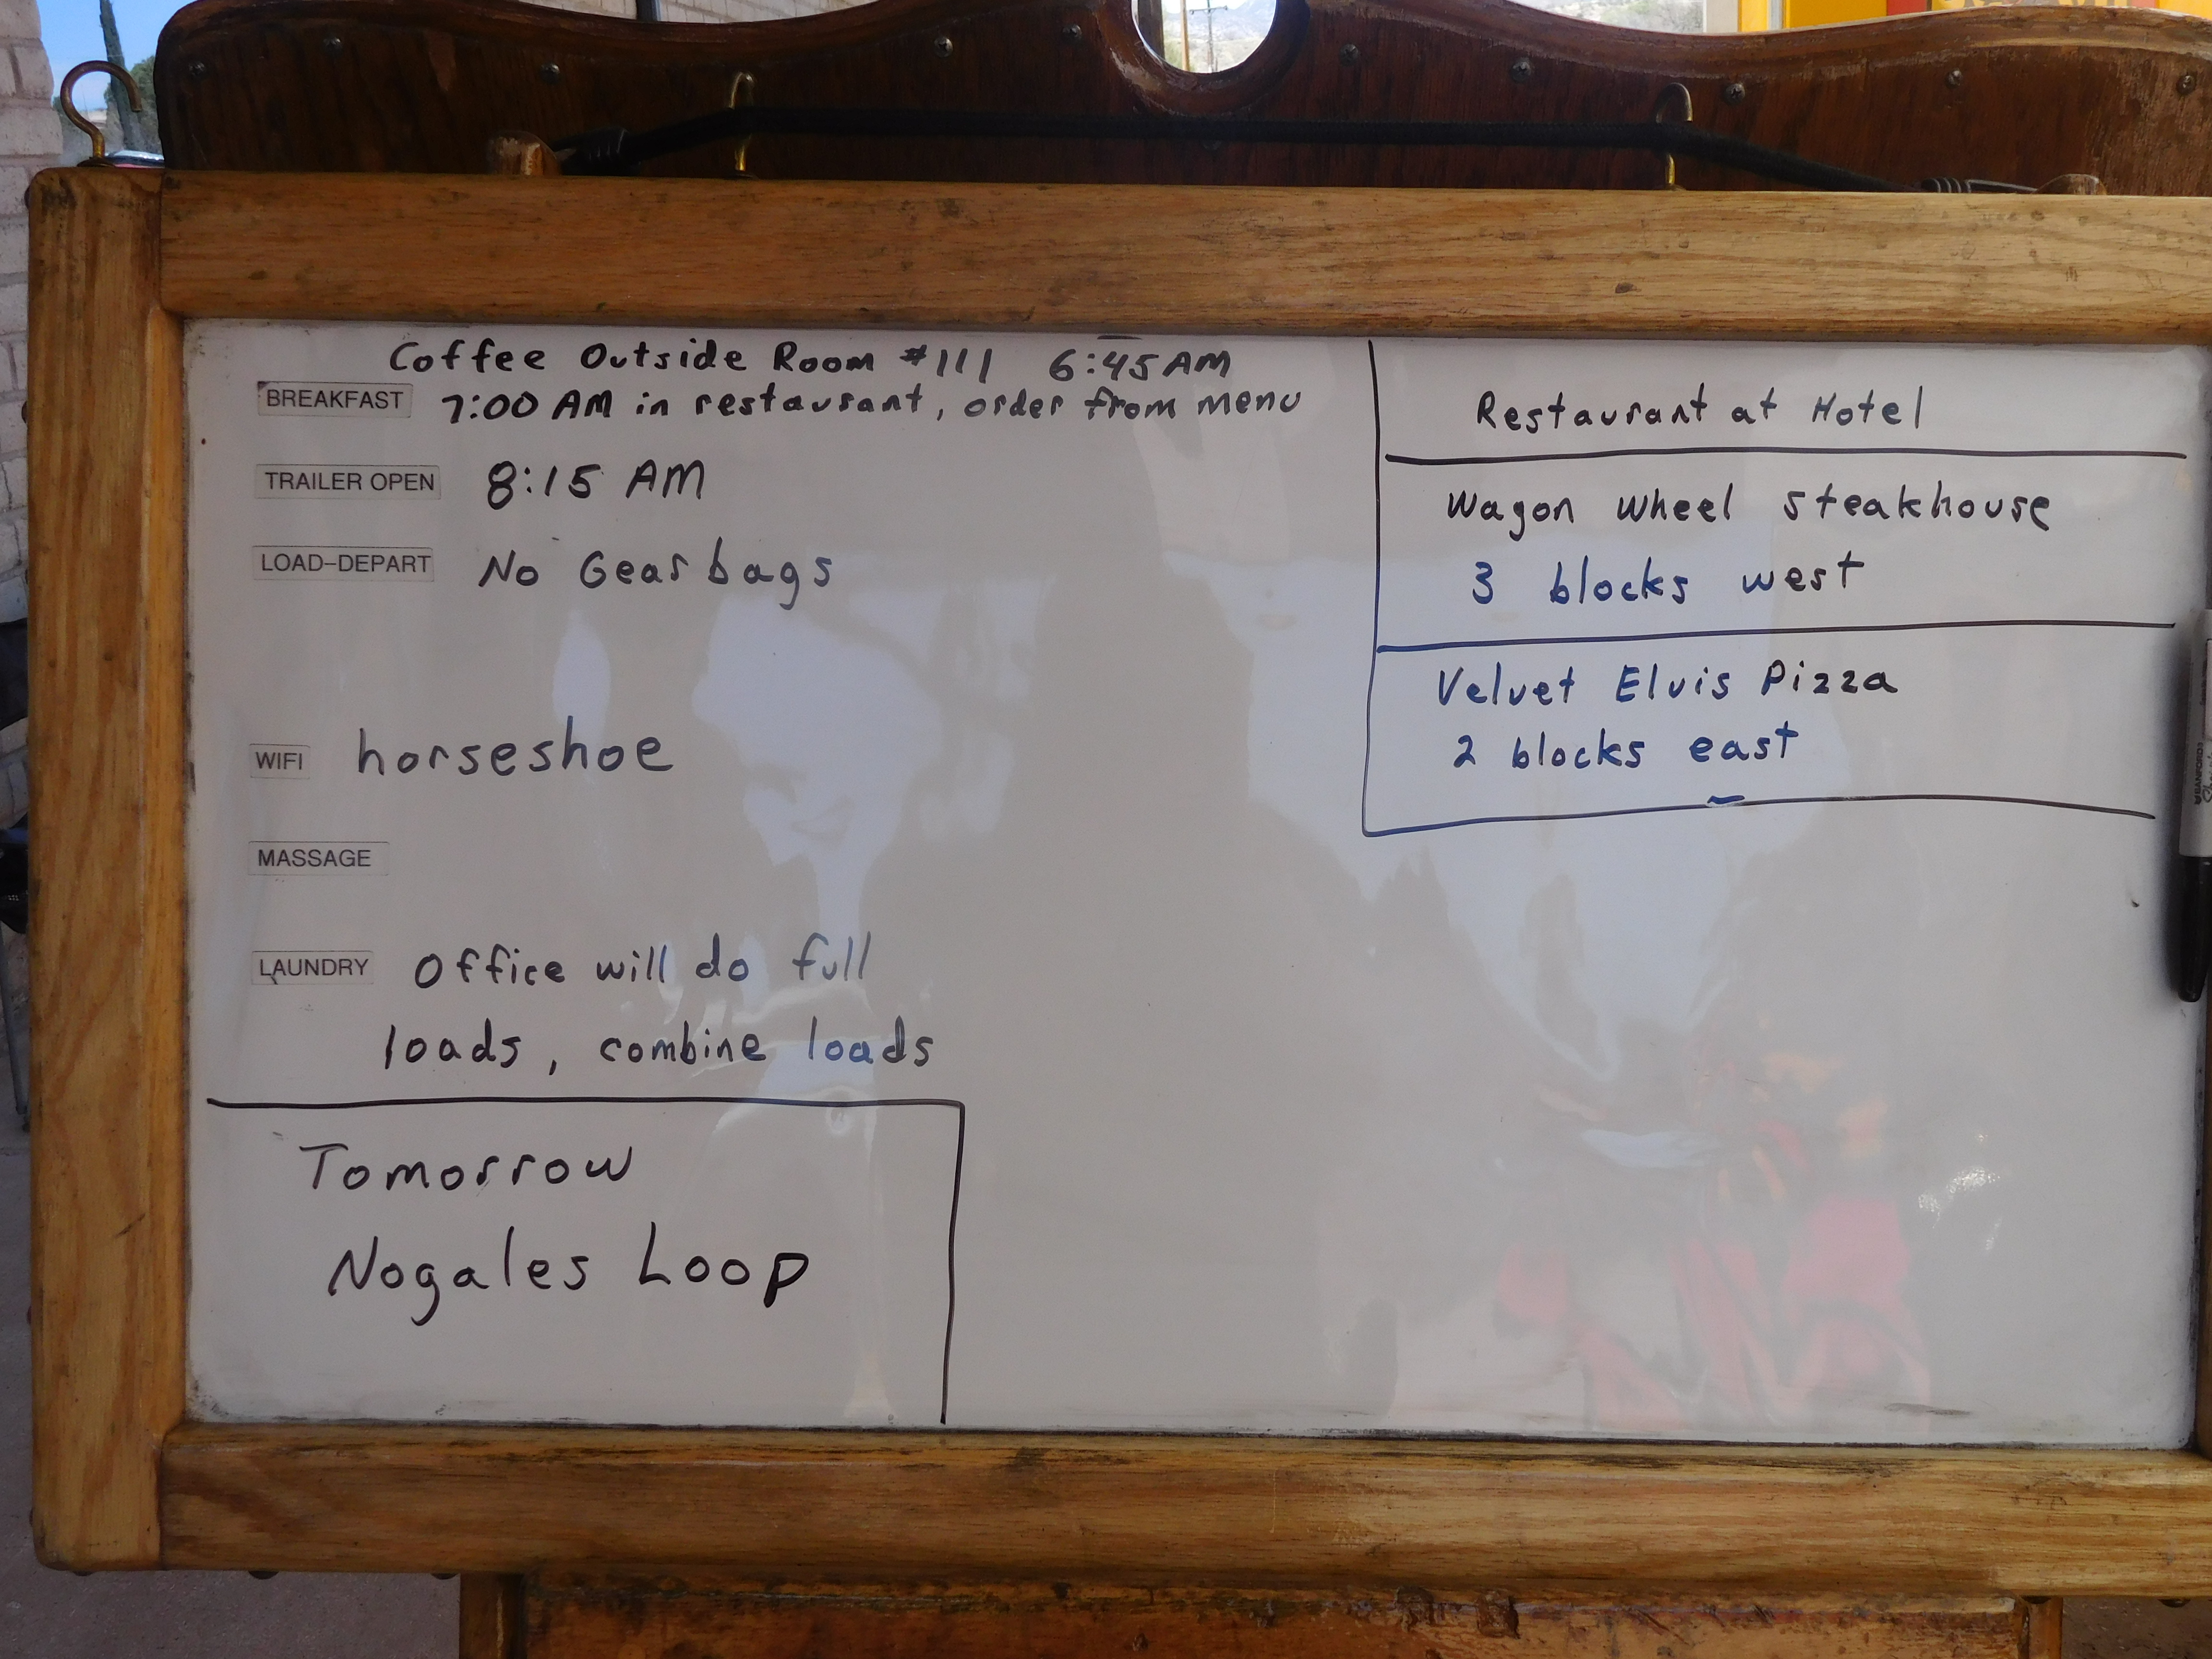 Coffee Outside Room #111 6:45 AM
BREAKFAST 7:00 AM in restaurant, order from menu
TRAILER OPEN 8:15 AM
LOAD-DEPART No Gear bags
WIFI horseshoe
MASSAGE
LAUNDRY Office will do full
loads, combine loads
Tomorrow
Nogales Loop
Restaurant at Hotel
Wagon Wheel Steakhouse
3 blocks west
Velvet Elvis Pizza
2 blocks east